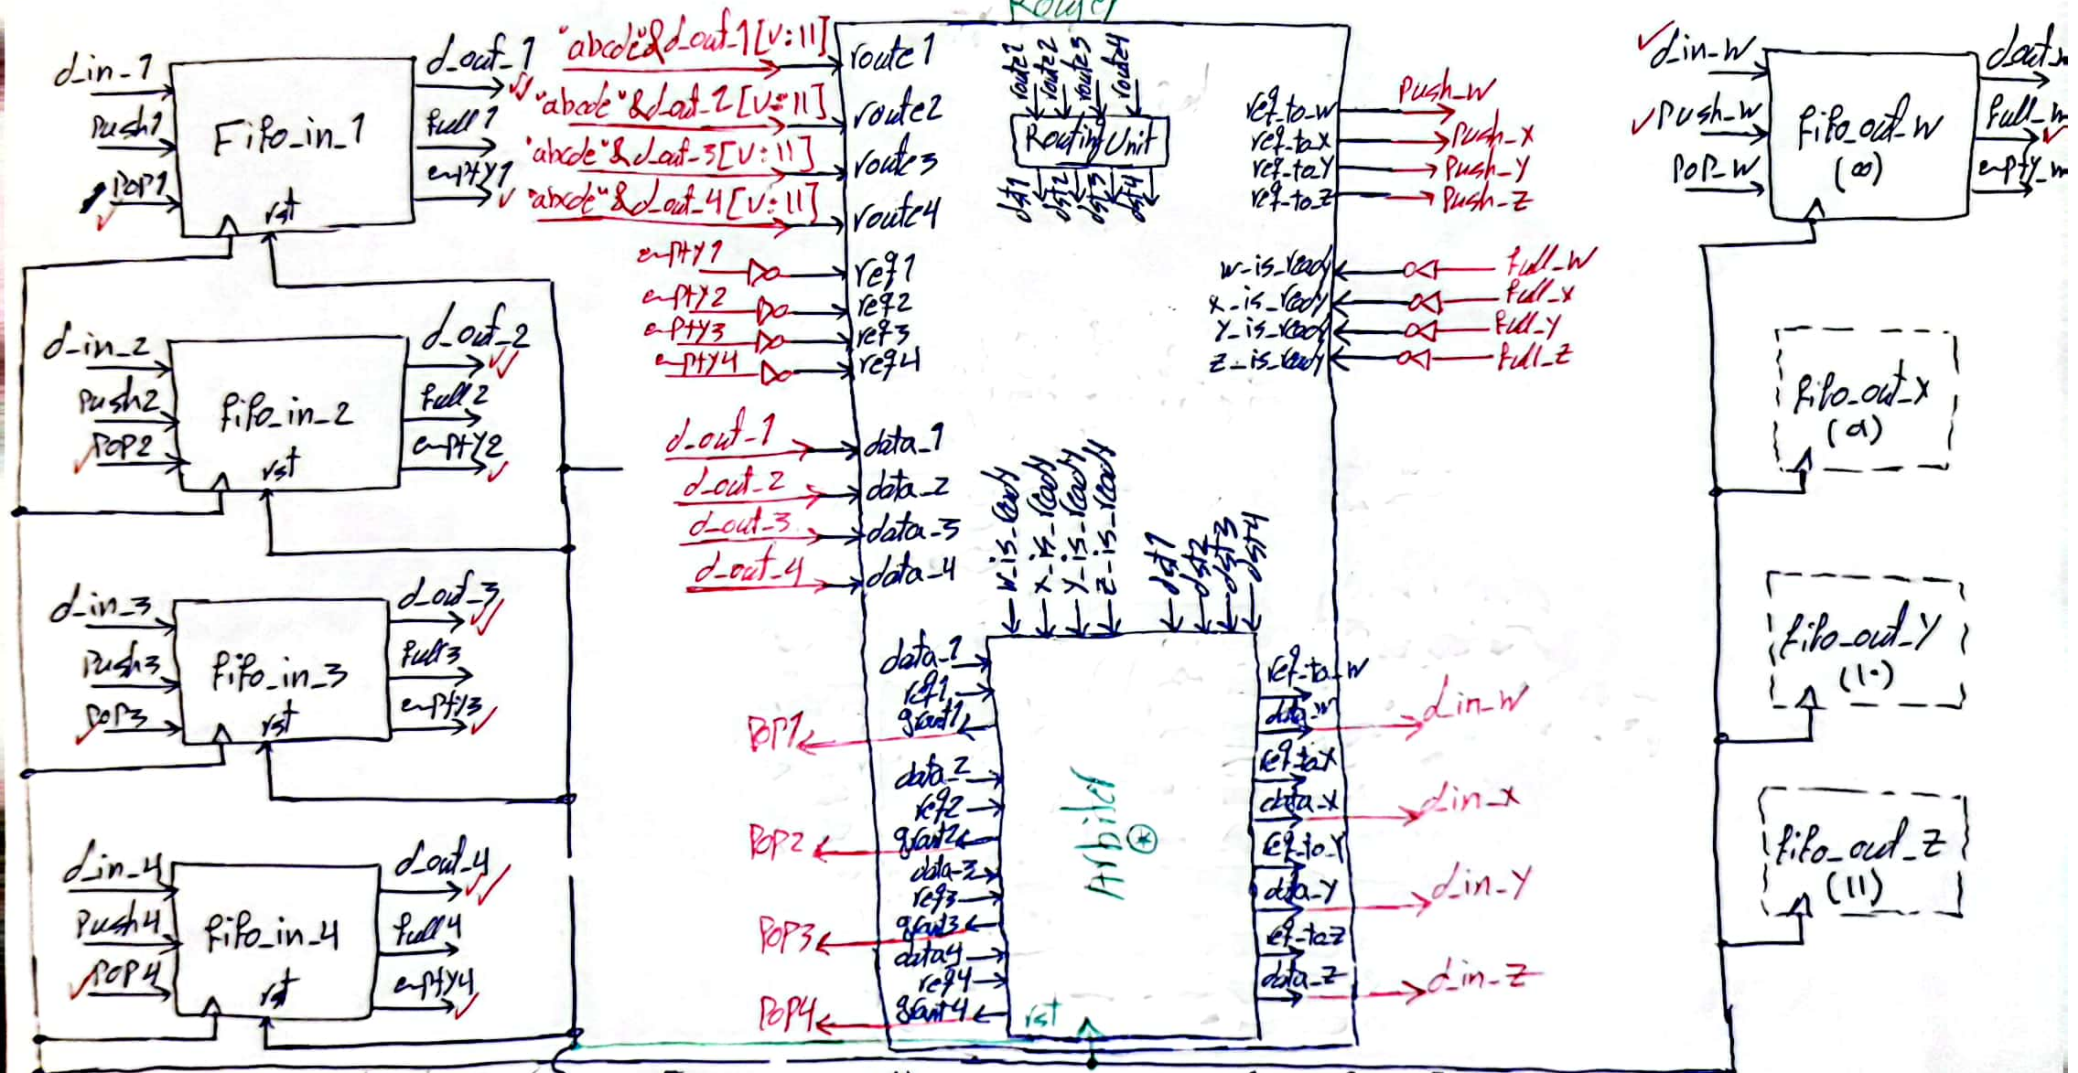 d_in_1
Push1
POP1
Fifo_in_1
rst
d_out_1
full1
empty1
d_in_2
Push2
POP2
fifo_in_2
rst
d_out_2
full2
empty2
d_in_3
Push3
POP3
fifo_in_3
rst
d_out_3
full3
empty3
d_in_4
Push4
POP4
fifo_in_4
rst
d_out_4
full4
empty4
Router
"abcde"&d_out_1[V:11]
"abcde"&d_out_2[V:11]
"abcde"&d_out_3[V:11]
"abcde"&d_out_4[V:11]
route1
route2
route3
route4
empty1
empty2
empty3
empty4
req1
req2
req3
req4
d_out_1
d_out_2
d_out_3
d_out_4
data_1
data_2
data_3
data_4
route2
route3
route4
Routing Unit
dst1
dst2
dst3
dst4
req_to_w
req_to_x
req_to_Y
req_to_z
Push_w
Push_x
Push_y
Push_z
w_is_ready
x_is_ready
y_is_ready
z_is_ready
full_w
full_x
full_y
full_z
w_is_ready
x_is_ready
y_is_ready
z_is_ready
dst1
dst2
dst3
dst4
data_1
req1
grant1
data_2
req2
grant2
data_3
req3
grant3
data4
req4
grant4
POP1
POP2
POP3
POP4
Arbiter
rst
req_to_w
data_w
req_to_x
data_x
req_to_Y
data_Y
req_to_z
data_z
d_in_w
d_in_x
d_in_y
d_in_z
d_in_w
Push_w
POP_w
fifo_out_w
(00)
fifo_out_x
(01)
fifo_out_Y
(10)
fifo_out_z
(11)